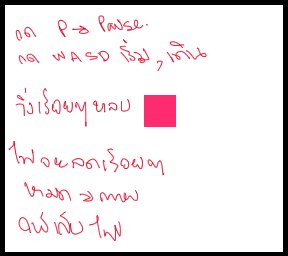 กด P → Pause.
กด WASD เริ่ม, เดิน
วิ่งเรื่อยๆ หลบ
ไฟจะลดเรื่อยๆ
หมด = ตาย
เก็บไฟ